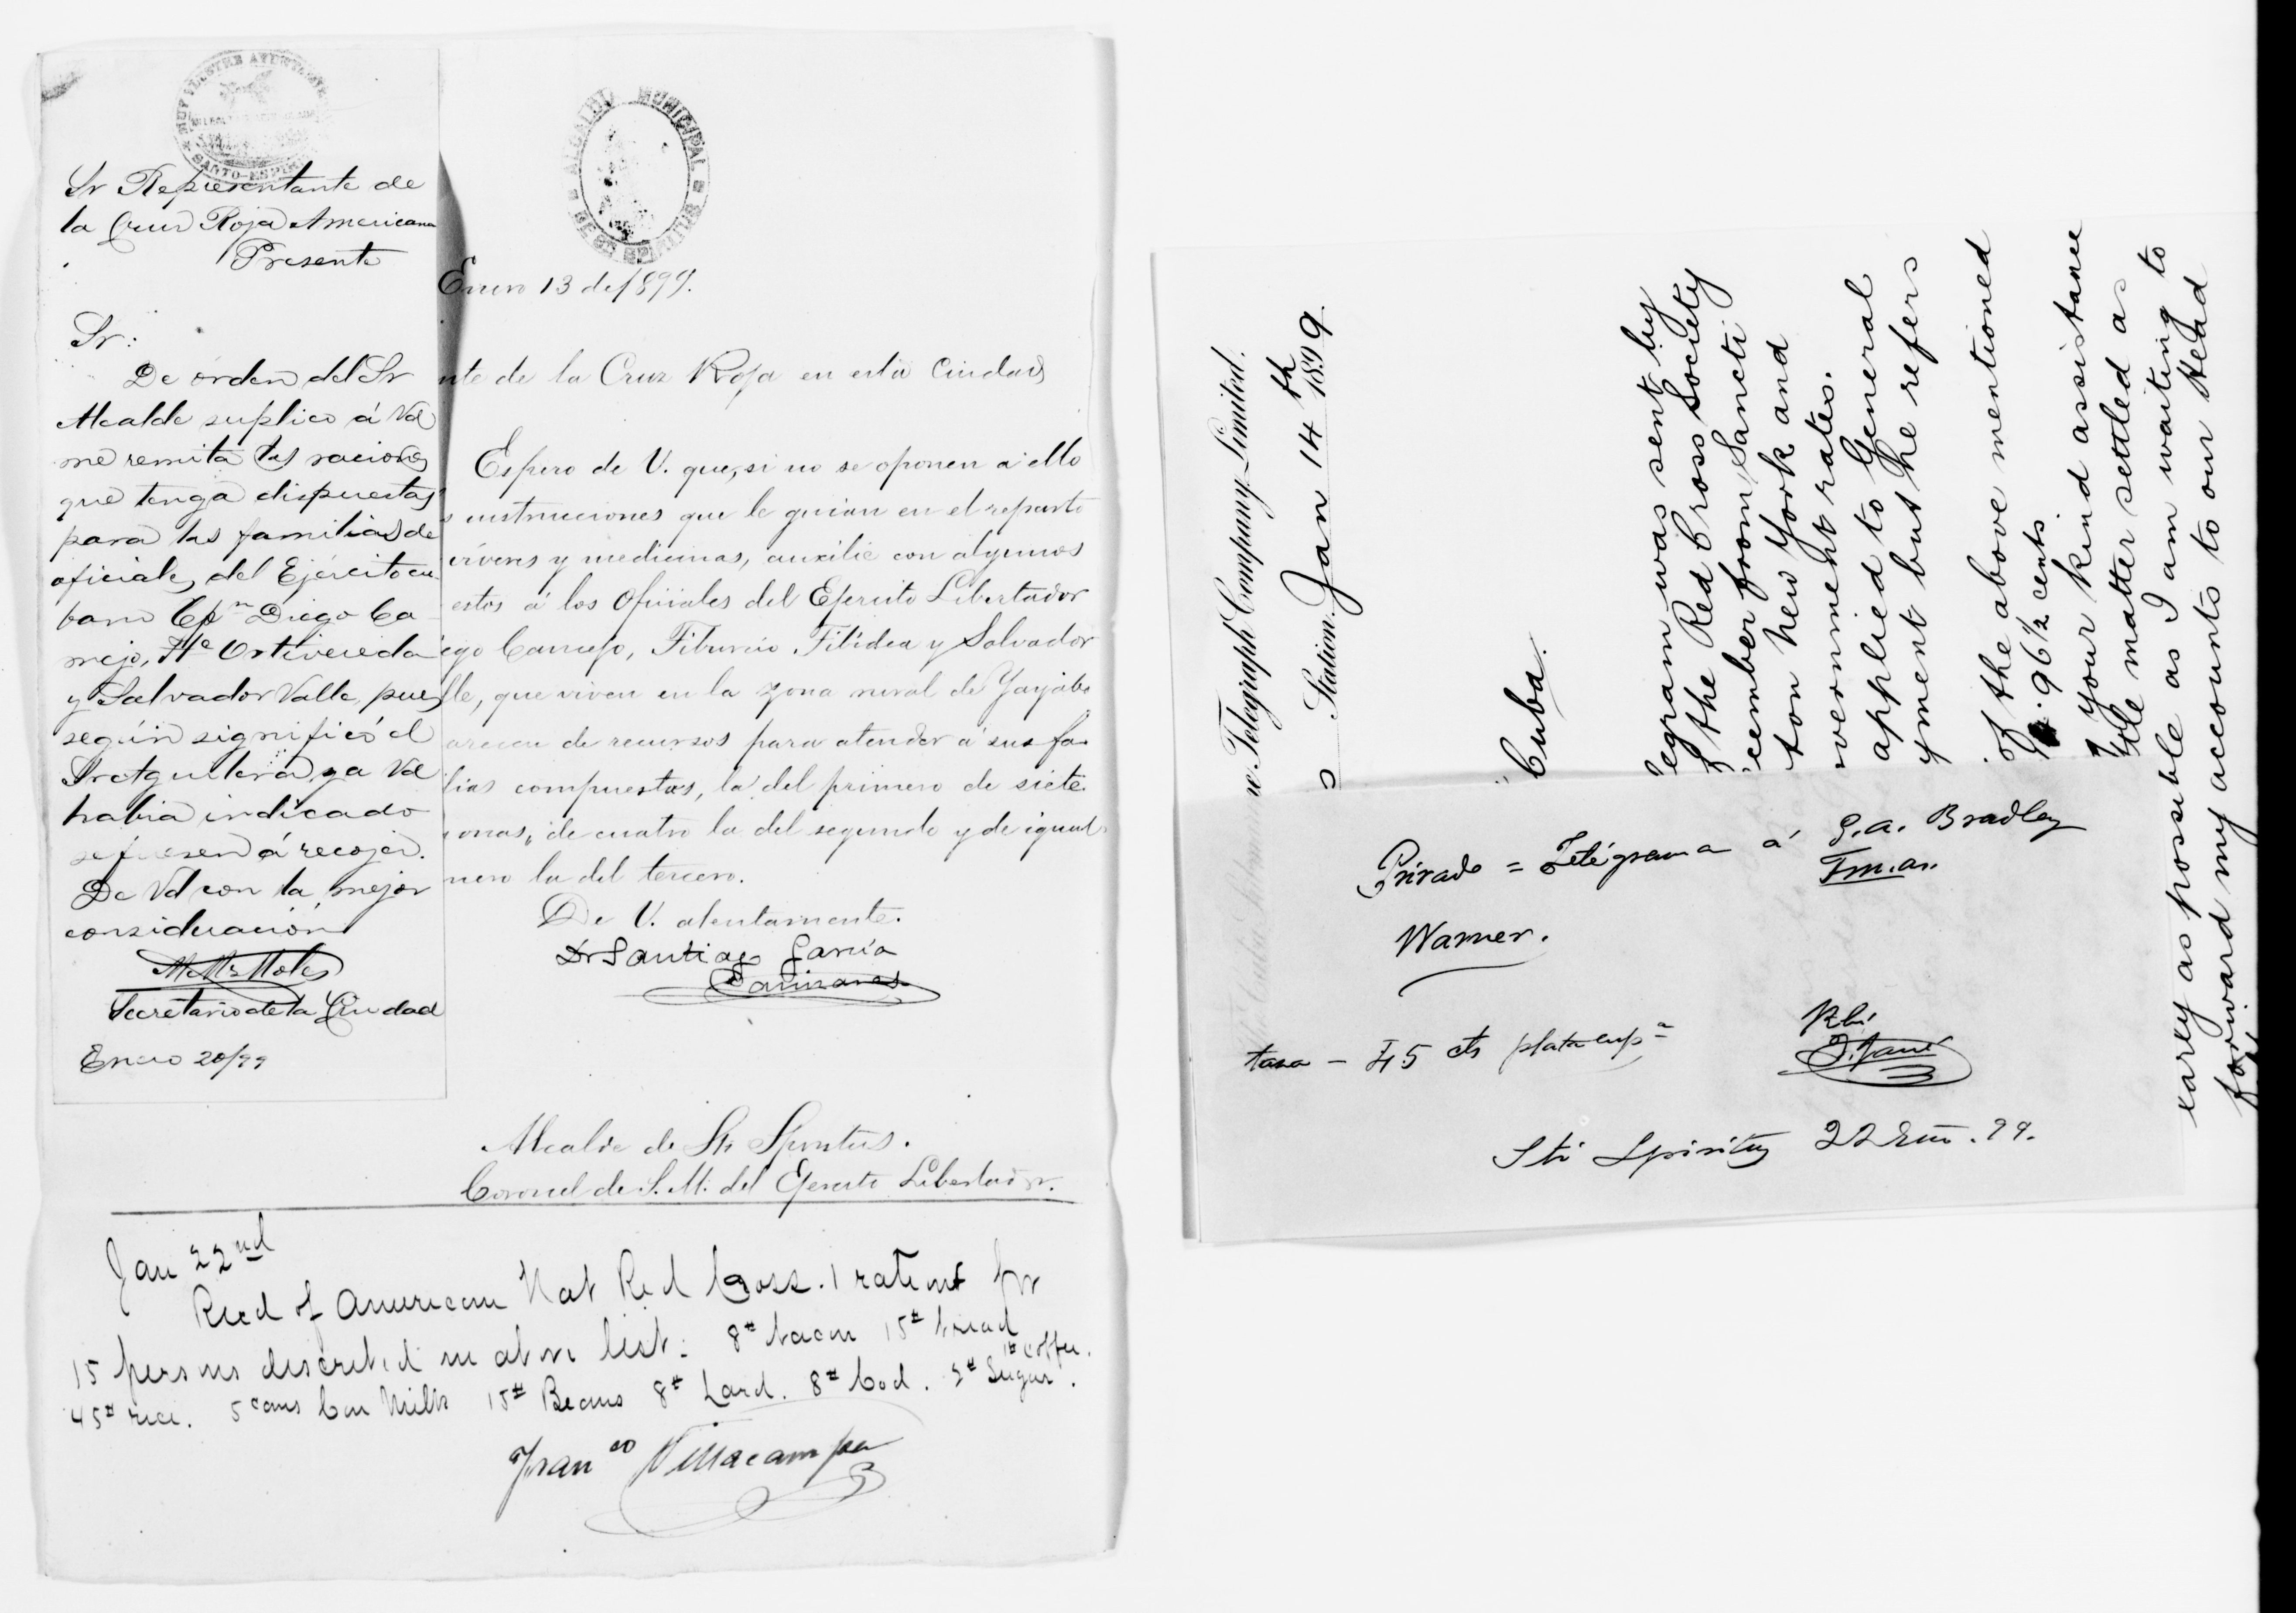 MUY ILUSTRE AYUNTAMIENTO
SANTO-ESPIRITU
Sr Representante de
la Cruz Roja Americana
Presente
Sr:
De órden del Sr
Alcalde suplico á Vd
me remita las raciones
que tenga dispuestas
para las familias de
oficiales del Ejército cu-
bano Cpn Diego Ca-
nejo, Tte Ontivereda
y Salvador Valle, pues
según significó el
Sr Aguilera ya Vd
habia indicado
se fuesen á recojer.
De Vd con la mejor
consideración
Secretario de la Ciudad
Enero 20/99
ALCALDIA MUNICIPAL
DE STO ESPIRITUS
Enero 13 de 1899.
nte de la Cruz Roja en esta Ciudad
Espero de V. que, si no se oponen a ello
s instrucciones que le guian en el reparto
víveres y medicinas, auxilie con algunos
estos á los Oficiales del Ejercito Libertador
ego Canejo, Tiburcio Filidea y Salvador
lle, que viven en la zona rural de Yayabo
arecen de recursos para atender á sus fa-
lias compuestas, la del primero de siete
onas, de cuatro la del segundo y de igual
mero la del tercero.
De V. atentamente.
Dr Santiago García
Cañizares
Alcalde de Sti Spiritus.
Coronel de S. M. del Ejercito Libertador.
Jan 22nd
Recd of American Nat Red Cross. 1 rations for
15 persons described in above list: 8# bacon 15# bread
1# coffee.
45# rice. 5 cans Con Milk 15# Beans 8# Lard. 8# Cod. 3# Sugar.
Franco Villacampa
Telegraph Company Limited.
Station. Jan 14th 1899.
Cuba.
egram was sent by
f the Red Cross Society
cember from Sancti
ton New York and
vernment rates.
applied to General
yment but he refers
of the above mentioned
. 96 1/2 cents.
your kind assistance
tle matter settled as
early as possible as I am waiting to
forward my accounts to our Head
Privado = Telégrama á G. A. Bradley
Warner.
tasa - 45 cts plata espa
Rbi
Sti Spiritus 22 Eno. 99.